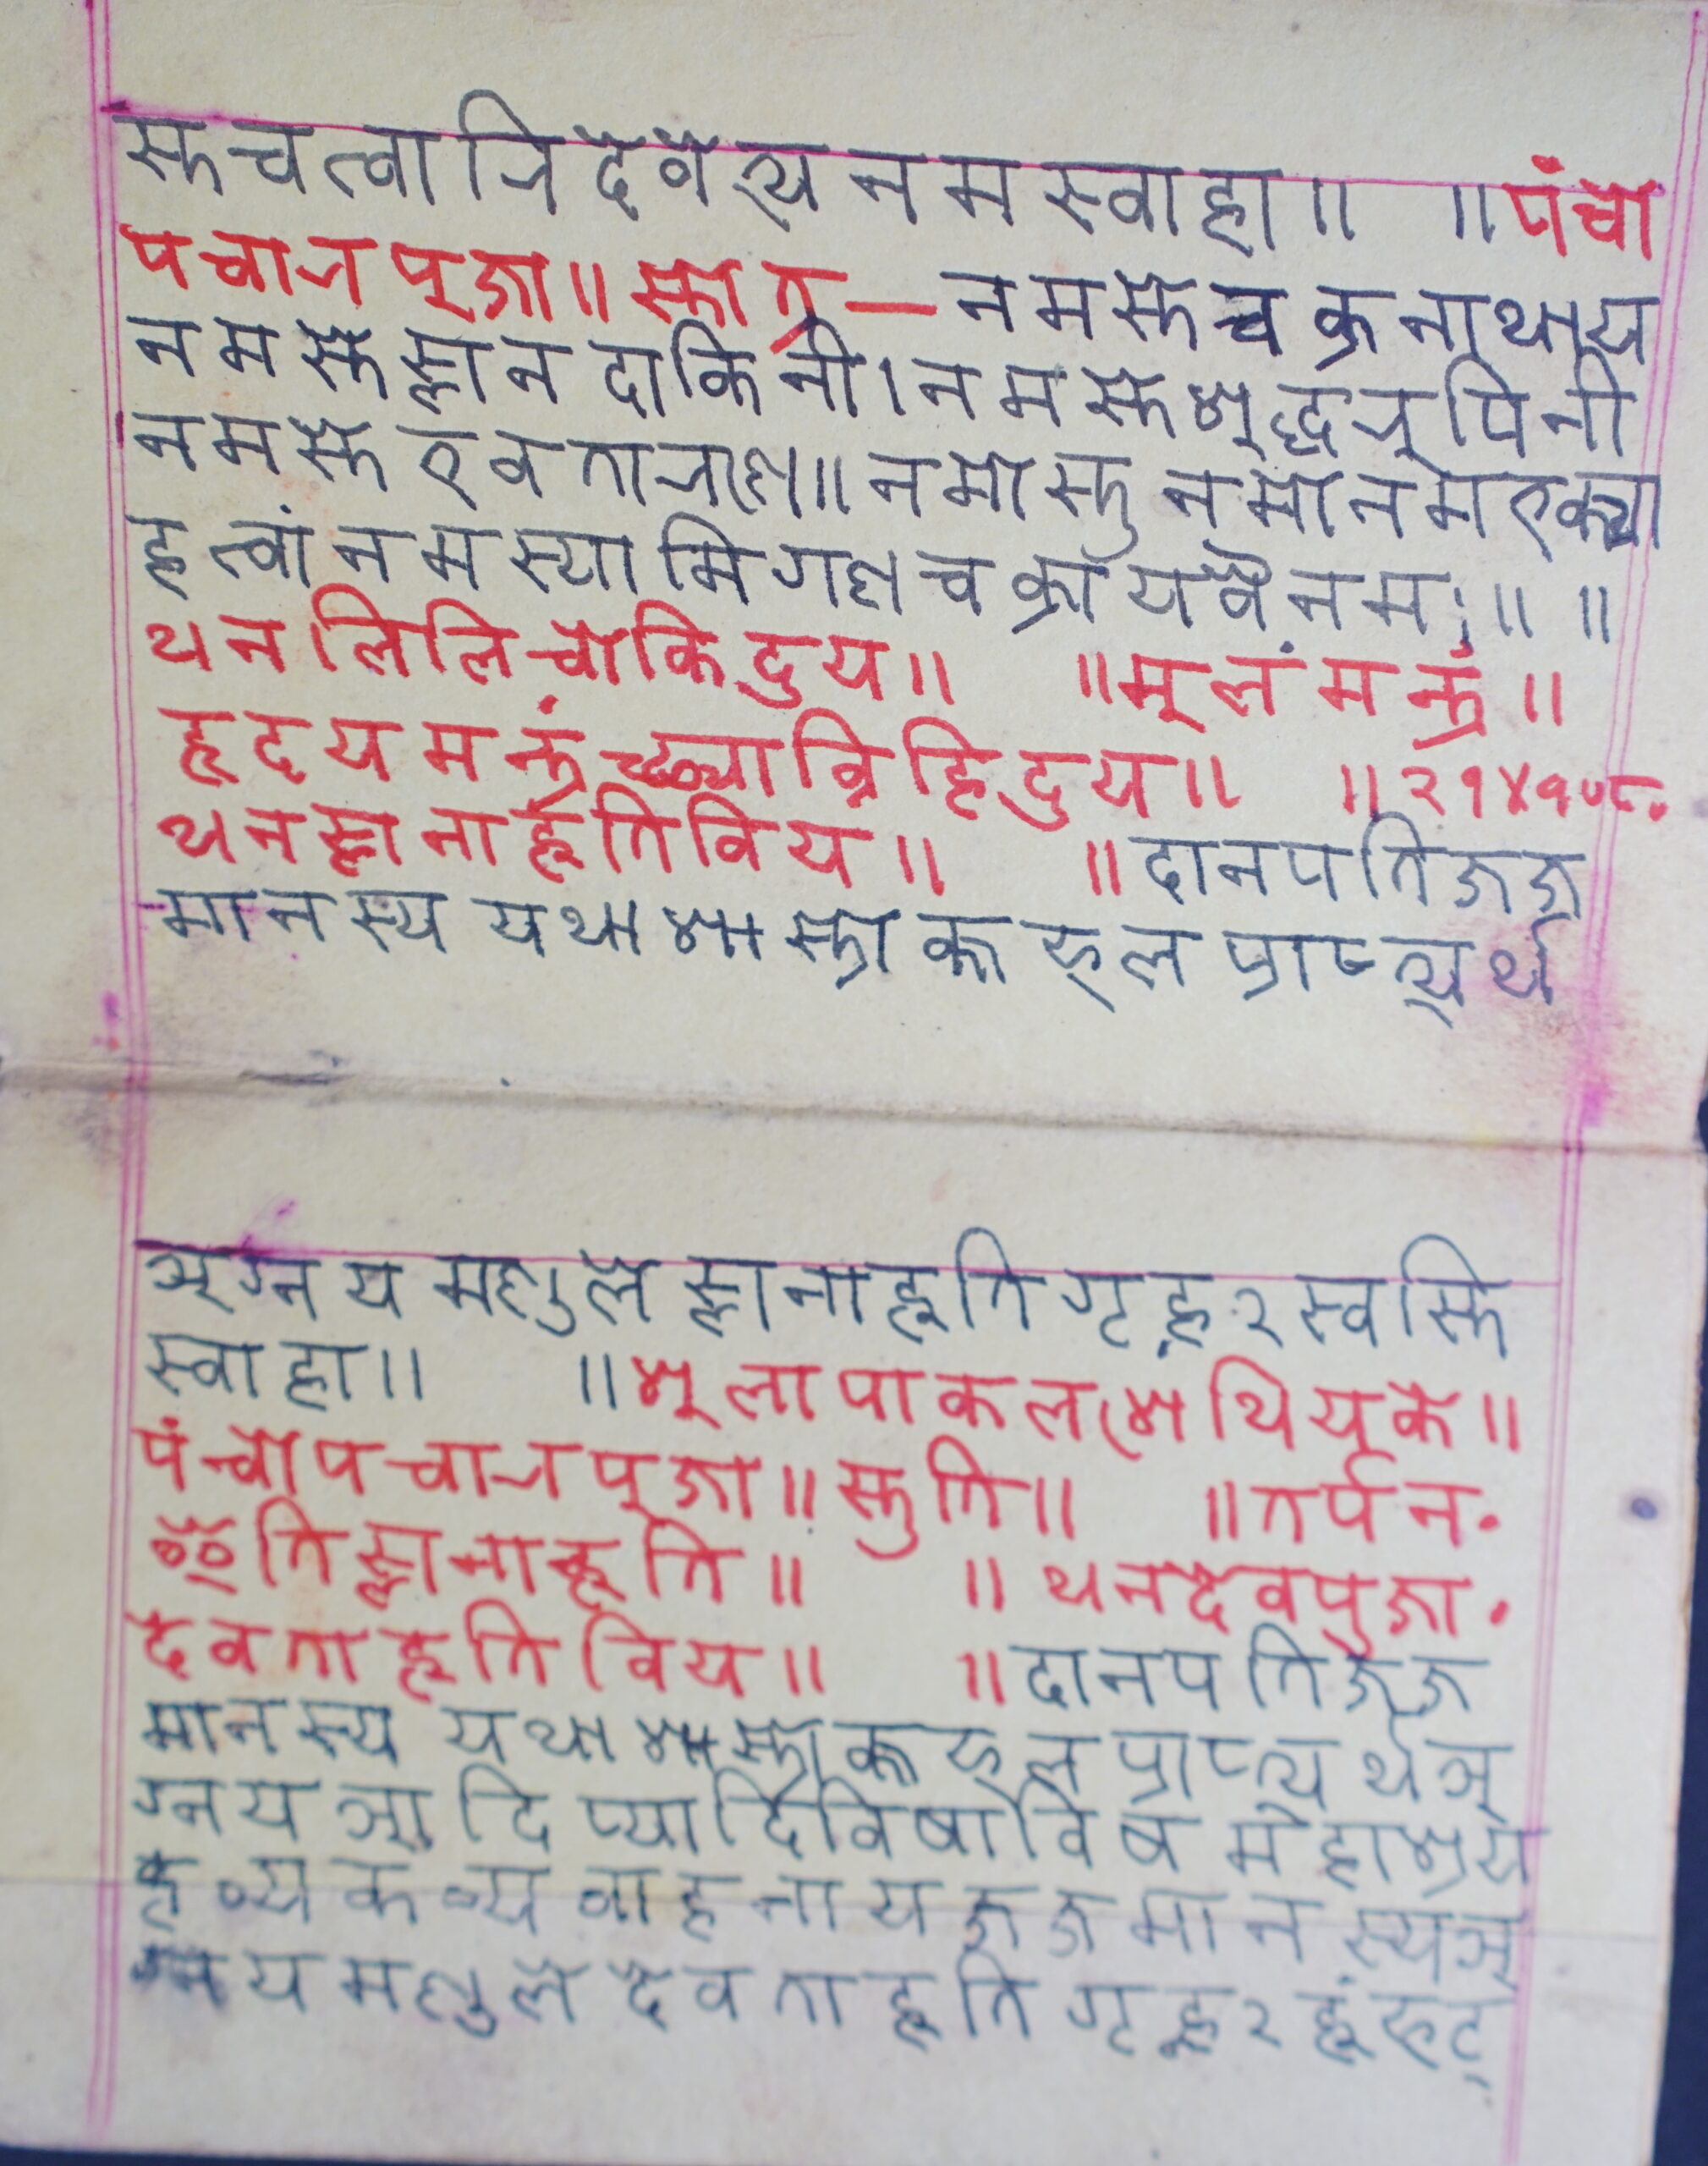 स्तचत्वारिदेवेभ्य नम स्वाहा॥ ॥पंचो
पचार पूजा॥ स्तोत्र — नमस्ते चक्रनाथाय
नमस्ते ज्ञान दाकिनी। नमस्ते शुद्धरूपिनी
नमस्ते देवताराण॥ नमोस्तु नमोनम
हत्वां नमस्यामि गण चक्राय वै नमः॥ ॥
थनलिलिचोकिदुय॥ ॥मूलंमन्त्रं॥
हृदय मन्त्रं दुय॥ ॥२१४१०८.
थनज्ञानाहूतिविय॥ ॥दानपतिजज
मानस्य यथा शास्त्रोक्त फल प्राप्त्यर्थ
अग्नय मण्डले ज्ञानाहूति गृह्न२ स्वस्ति
स्वाहा॥ ॥भूलापाकलशथियके॥
पंचोपचार पूजा॥ स्तुति॥ ॥तर्पन.
ॐति ज्ञानाहूति॥ ॥थनदेवपुजा.
देवताहूतिविय॥ ॥दानपतिजज
मानस्य यथा शास्त्रोक्त फल प्राप्त्यर्थ अ
ग्नय आदिप्यादिविषाविष महाश्रय
हव्य कव्य वाहनाय जजमानस्य अ
ग्नय मण्डले देवताहूति गृह्न२ हूं फट्